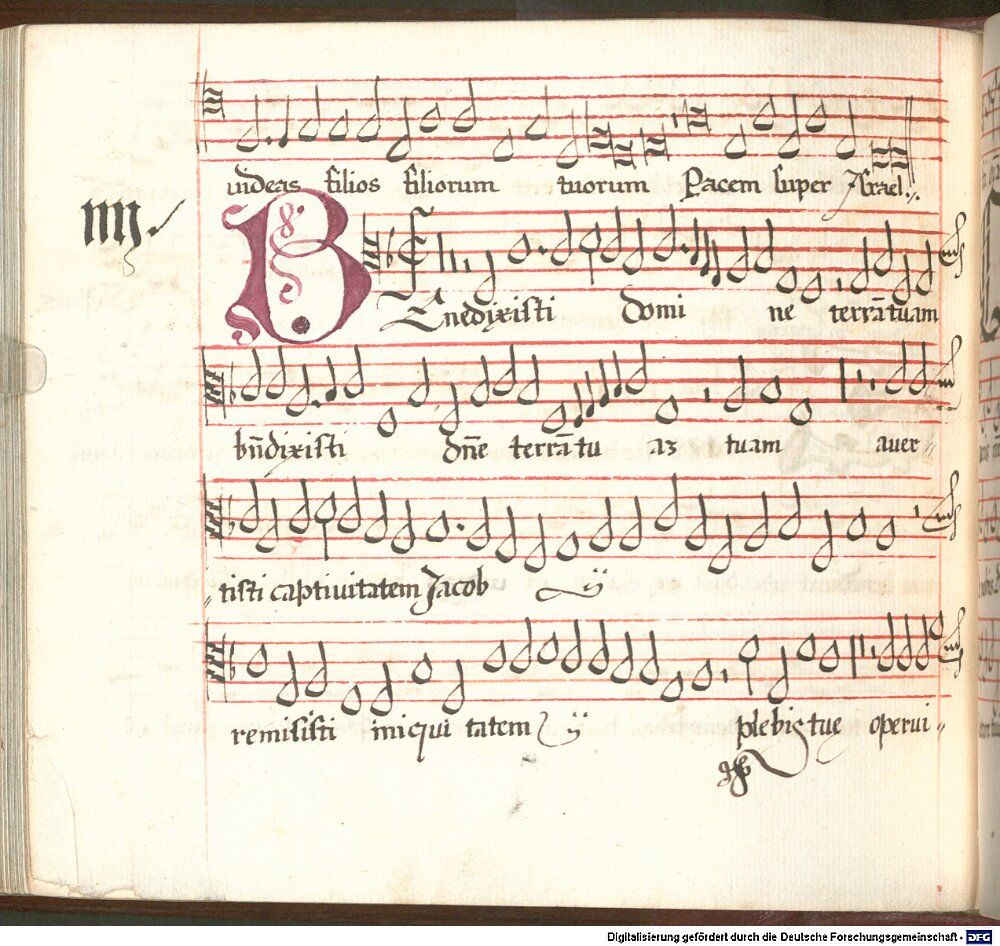 uideas filios filiorum tuorum Pacem super Israel.
iiij.
8.
Benedixisti Domi ne terrā tuam
bn̄dixisti dn̄e terrā tu as tuam auer-
tisti captiuitatem Jacob ij
remisisti iniqui tatem ij plebis tue operui-
Digitalisierung gefördert durch die Deutsche Forschungsgemeinschaft - DFG